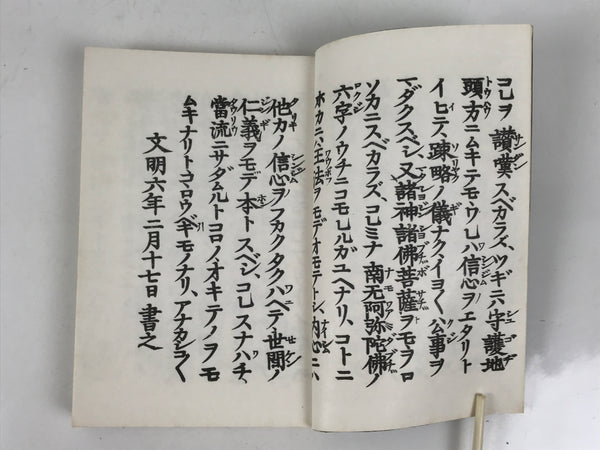 コレヲ讃嘆スベカラズ、ツギニハ守護地
頭方ニムキテモワレハ信心ヲエタリト
イヒテ、疎略ノ儀ナク、イヨ〱公事ヲ
マタクスベシ、又諸神諸佛菩薩ヲモヲロ
ソカニスベカラズ、コレミナ南无阿弥陀佛ノ
六字ノウチニコモレルガユヘナリ、コトニ
ホカニハ王法ヲモテオモテトシ、内心ニハ
他力ノ信心ヲフカクタクハヘテ、世間ノ
仁義ヲモテ本トスベシ、コレスナハチ、
當流ニサダムルトコロノオキテノヲモ
ムキナリトコヽロウベキモノナリ、アナカシコ〱
文明六年二月十七日書之